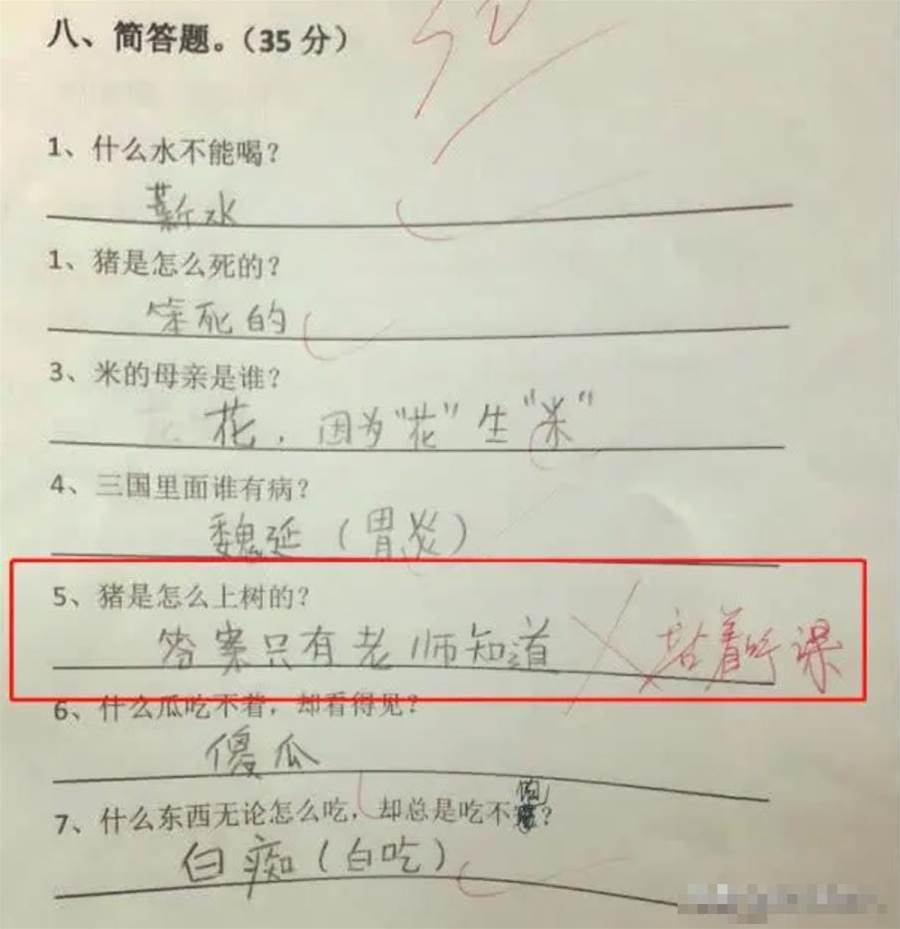 八、简答题。（35 分）
1、什么水不能喝？
薪水
1、猪是怎么死的？
笨死的
3、米的母亲是谁？
花，因为“花”生“米”
4、三国里面谁有病？
魏延（胃炎）
5、猪是怎么上树的？
答案只有老师知道
站着听课
6、什么瓜吃不着，却看得见？
傻瓜
7、什么东西无论怎么吃，却总是吃不饱？
白痴（白吃）